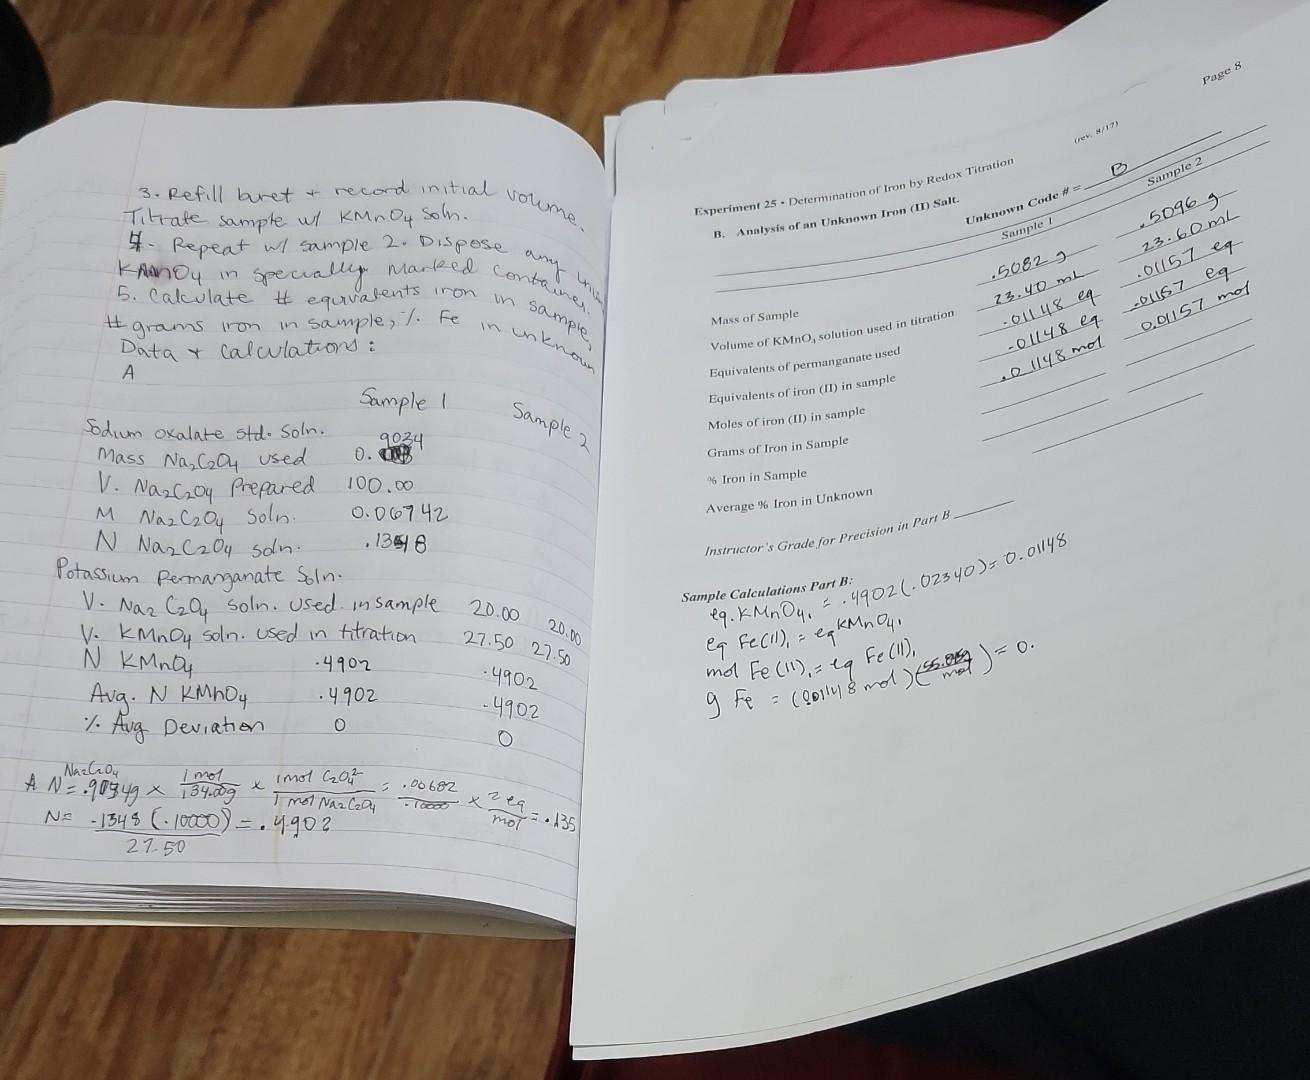 3. Refill buret + record initial volume.
Titrate sample w/ KMnO4 soln.
4. Repeat w/ sample 2. Dispose any
KMnO4 in specially marked container.
5. Calculate # equivalents iron in sample,
# grams iron in sample, % Fe in unknown
Data + Calculations:
A
Sample 1 Sample 2
Sodium oxalate std. soln.
Mass Na2C2O4 used 0.9034
V. Na2C2O4 Prepared 100.00
M Na2C2O4 soln. 0.06742
N Na2C2O4 soln. .1348
Potassium Permanganate Soln.
V. Na2C2O4 soln. used in sample 20.00 20.00
V. KMnO4 soln. used in titration 27.50 27.50
N KMnO4 .4902 .4902
Avg. N KMnO4 .4902 .4902
% Avg Deviation 0 0
A N Na2C2O4 = .9034g x 1 mol / 134.00g x 1 mol C2O4^2- / 1 mol Na2C2O4 = .00682 / .10000 x 2 eq / mol = .135
N = .1348 (.10000) / 27.50 = .4902
Page 8
(rev. 8/17)
Experiment 25 • Determination of Iron by Redox Titration
B. Analysis of an Unknown Iron (II) Salt.
Unknown Code # = B
Sample 1 Sample 2
Mass of Sample .5082 g .5096 g
Volume of KMnO4 solution used in titration 23.40 mL 23.60 mL
Equivalents of permanganate used .01148 eq .01157 eq
Equivalents of iron (II) in sample .01148 eq .01157 eq
Moles of iron (II) in sample .01148 mol 0.01157 mol
Grams of Iron in Sample
% Iron in Sample
Average % Iron in Unknown
Instructor's Grade for Precision in Part B
Sample Calculations Part B:
eq. KMnO4, = .4902 (.02340) = 0.01148
eq Fe(II), = eq KMnO4,
mol Fe(II), = eq Fe(II),
g Fe = (0.01148 mol) ( / mol) = 0.